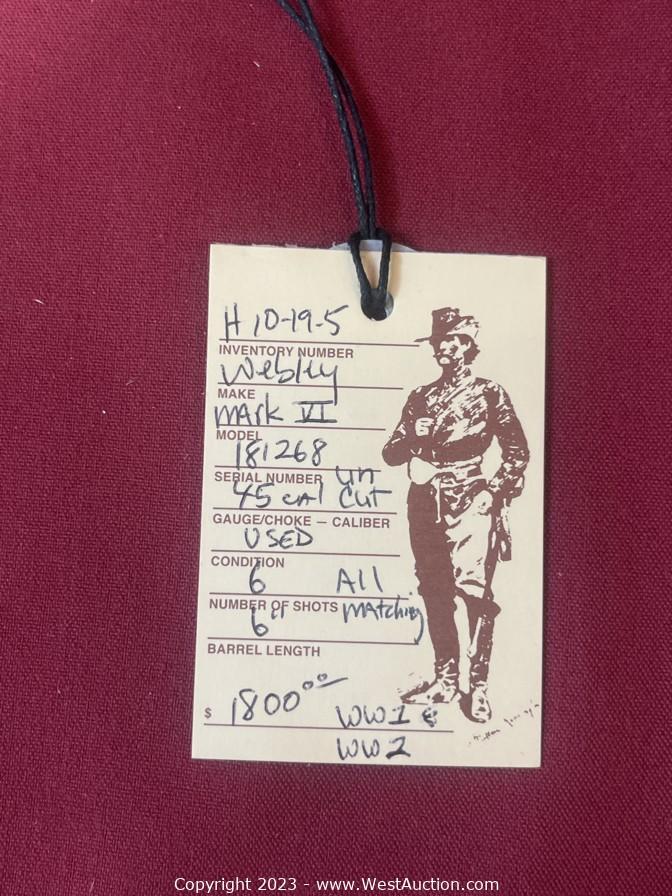 H 10-19-5
INVENTORY NUMBER
Webley
MAKE
MArk VI
MODEL
181268
SERIAL NUMBER un
45 cAl CUT
GAUGE/CHOKE — CALIBER
USED
CONDITION
6 All
NUMBER OF SHOTS MAtching
6"
BARREL LENGTH
$ 1800.00 WW1 &
WW2
Copyright 2023 - www.WestAuction.com